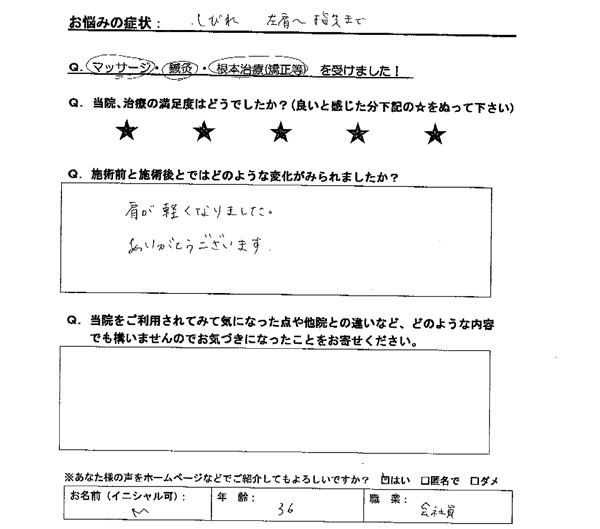 お悩みの症状： しびれ 左肩〜指先まで
Q．マッサージ・鍼灸・根本治療(矯正等) を受けました！
Q．当院、治療の満足度はどうでしたか？(良いと感じた分下記の☆をぬって下さい)
★ ★ ★ ★ ★
Q．施術前と施術後とではどのような変化がみられましたか？
肩が軽くなりました。
ありがとうございます.
Q．当院をご利用されてみて気になった点や他院との違いなど、どのような内容
でも構いませんのでお気づきになったことをお寄せください。
※あなた様の声をホームページなどでご紹介してもよろしいですか？ ☑はい □匿名で □ダメ
お名前(イニシャル可)： M 年 齢： 36 職 業： 会社員